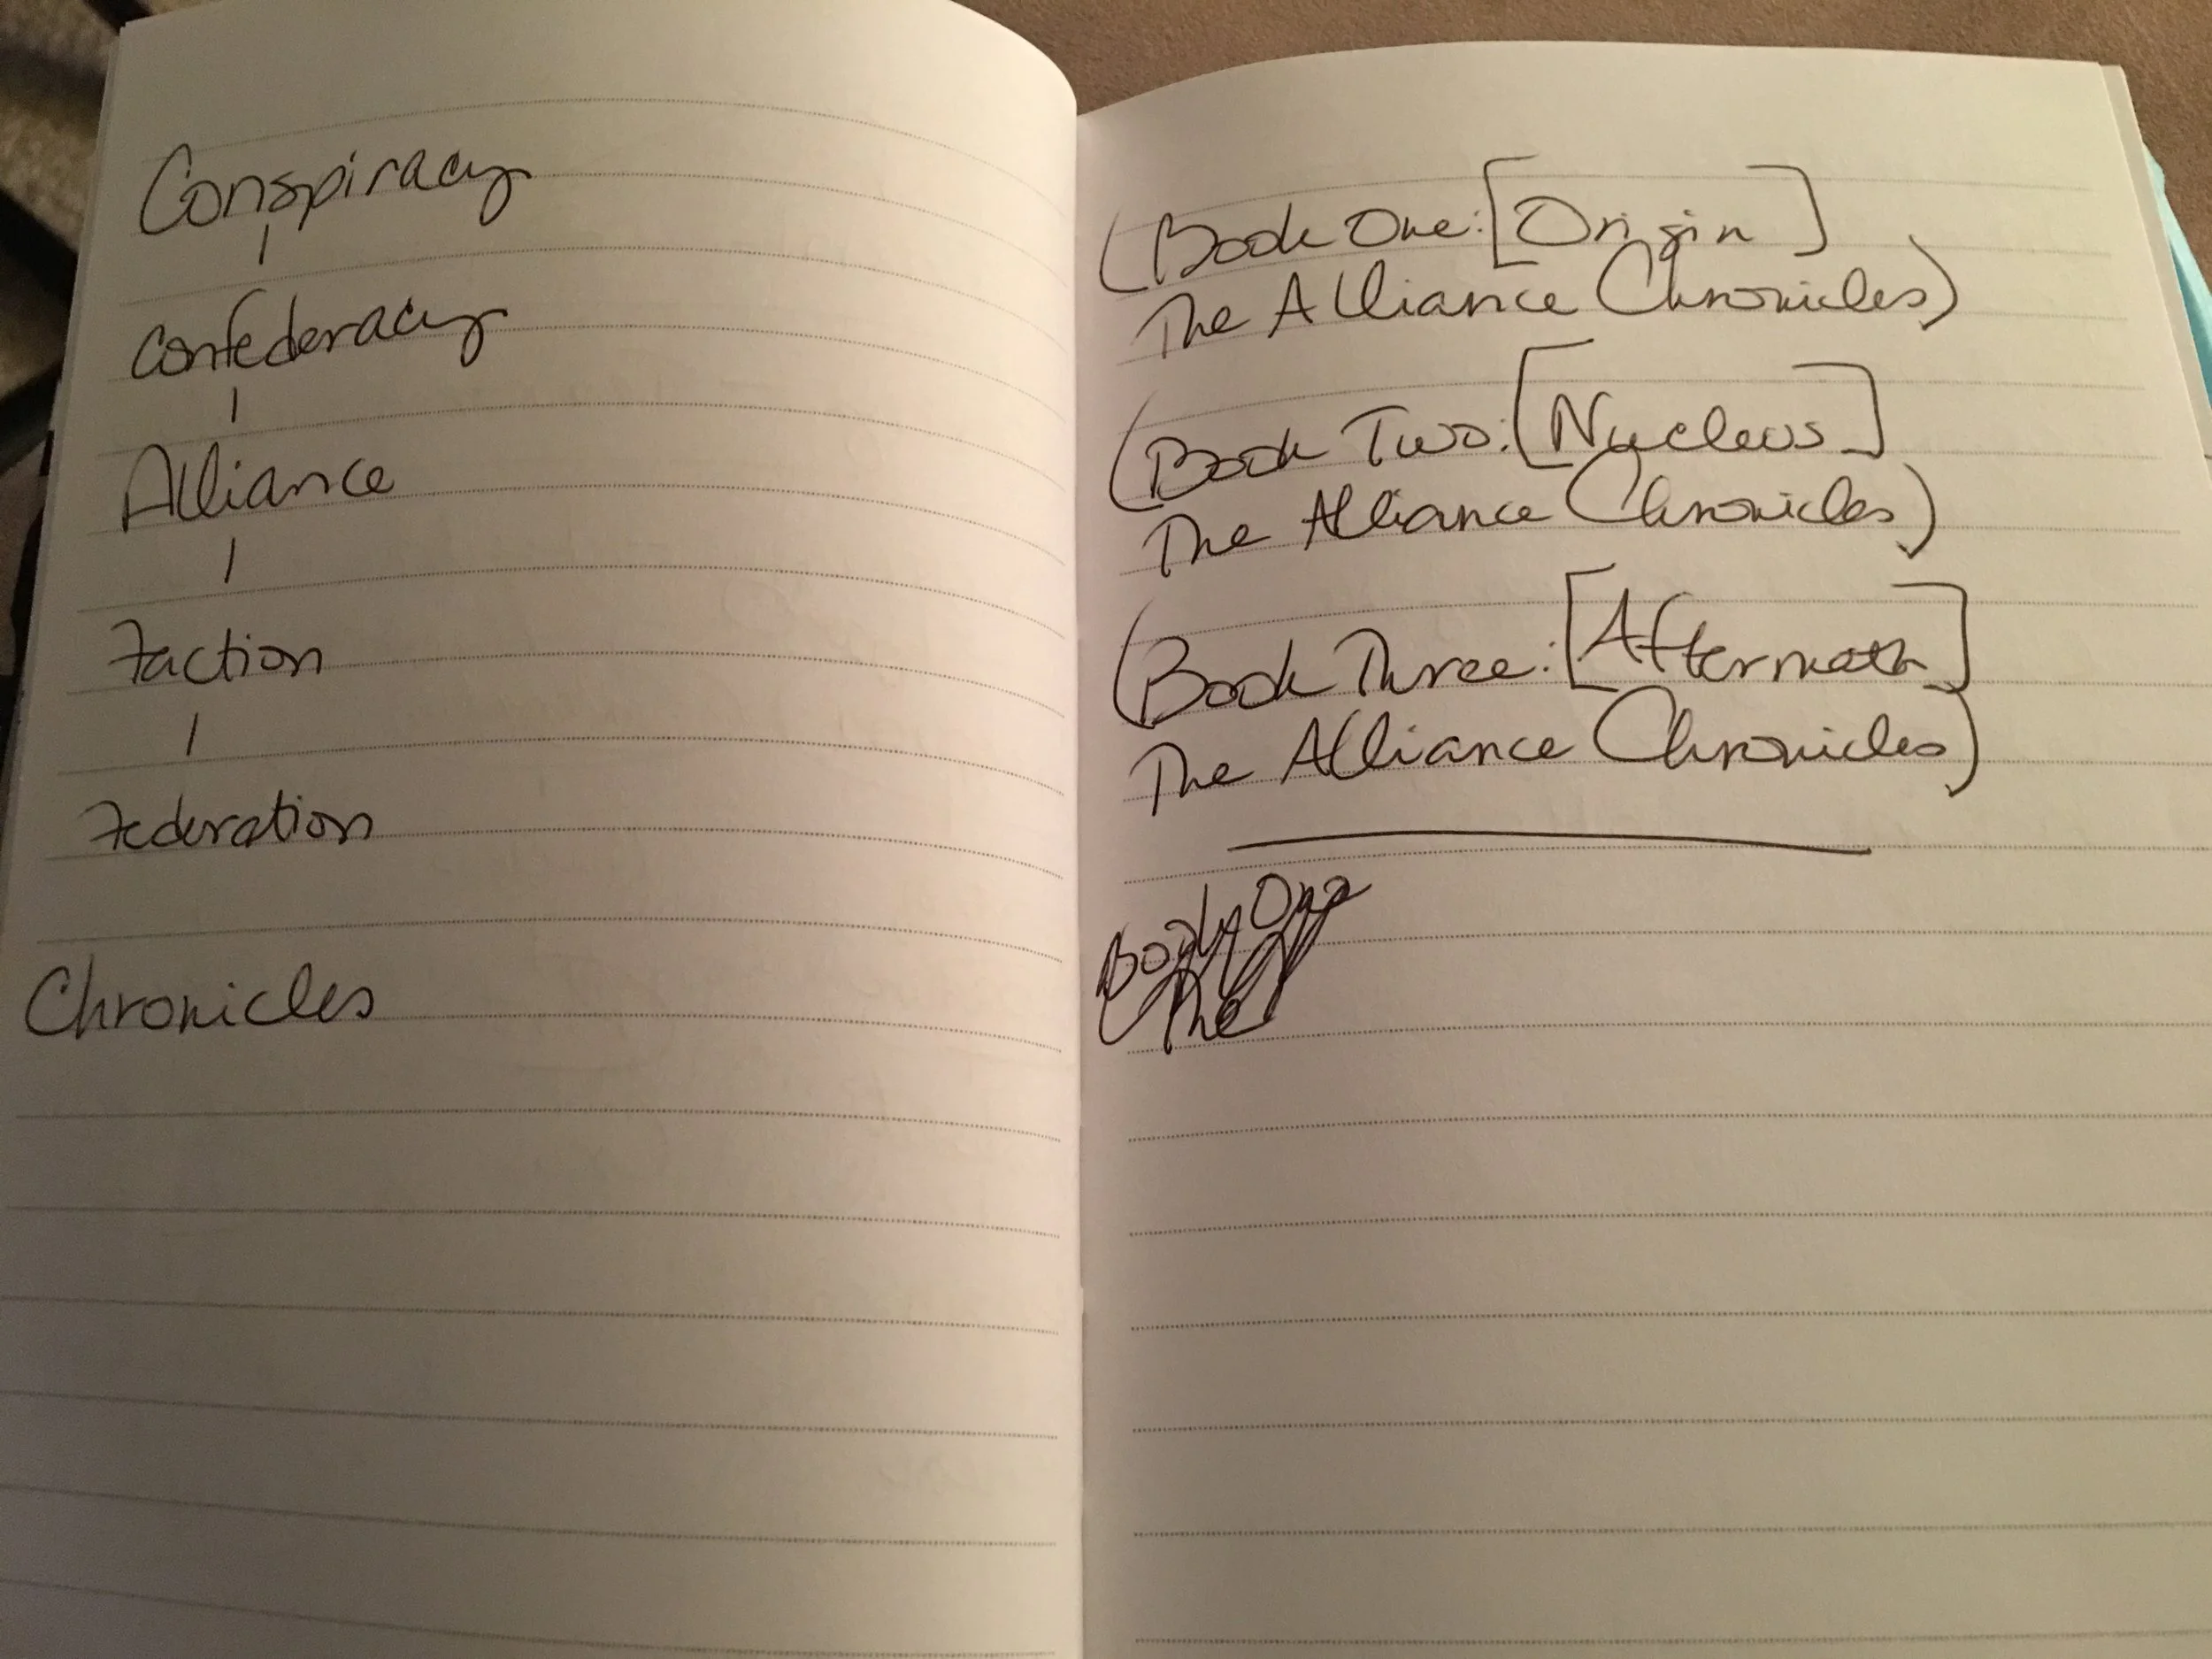 Conspiracy
|
Confederacy
|
Alliance
|
Faction
|
Federation
Chronicles
(Book One: [Origin]
The Alliance Chronicles)
(Book Two: [Nucleus]
The Alliance Chronicles)
(Book Three: [Aftermath]
The Alliance Chronicles)
Book One
The